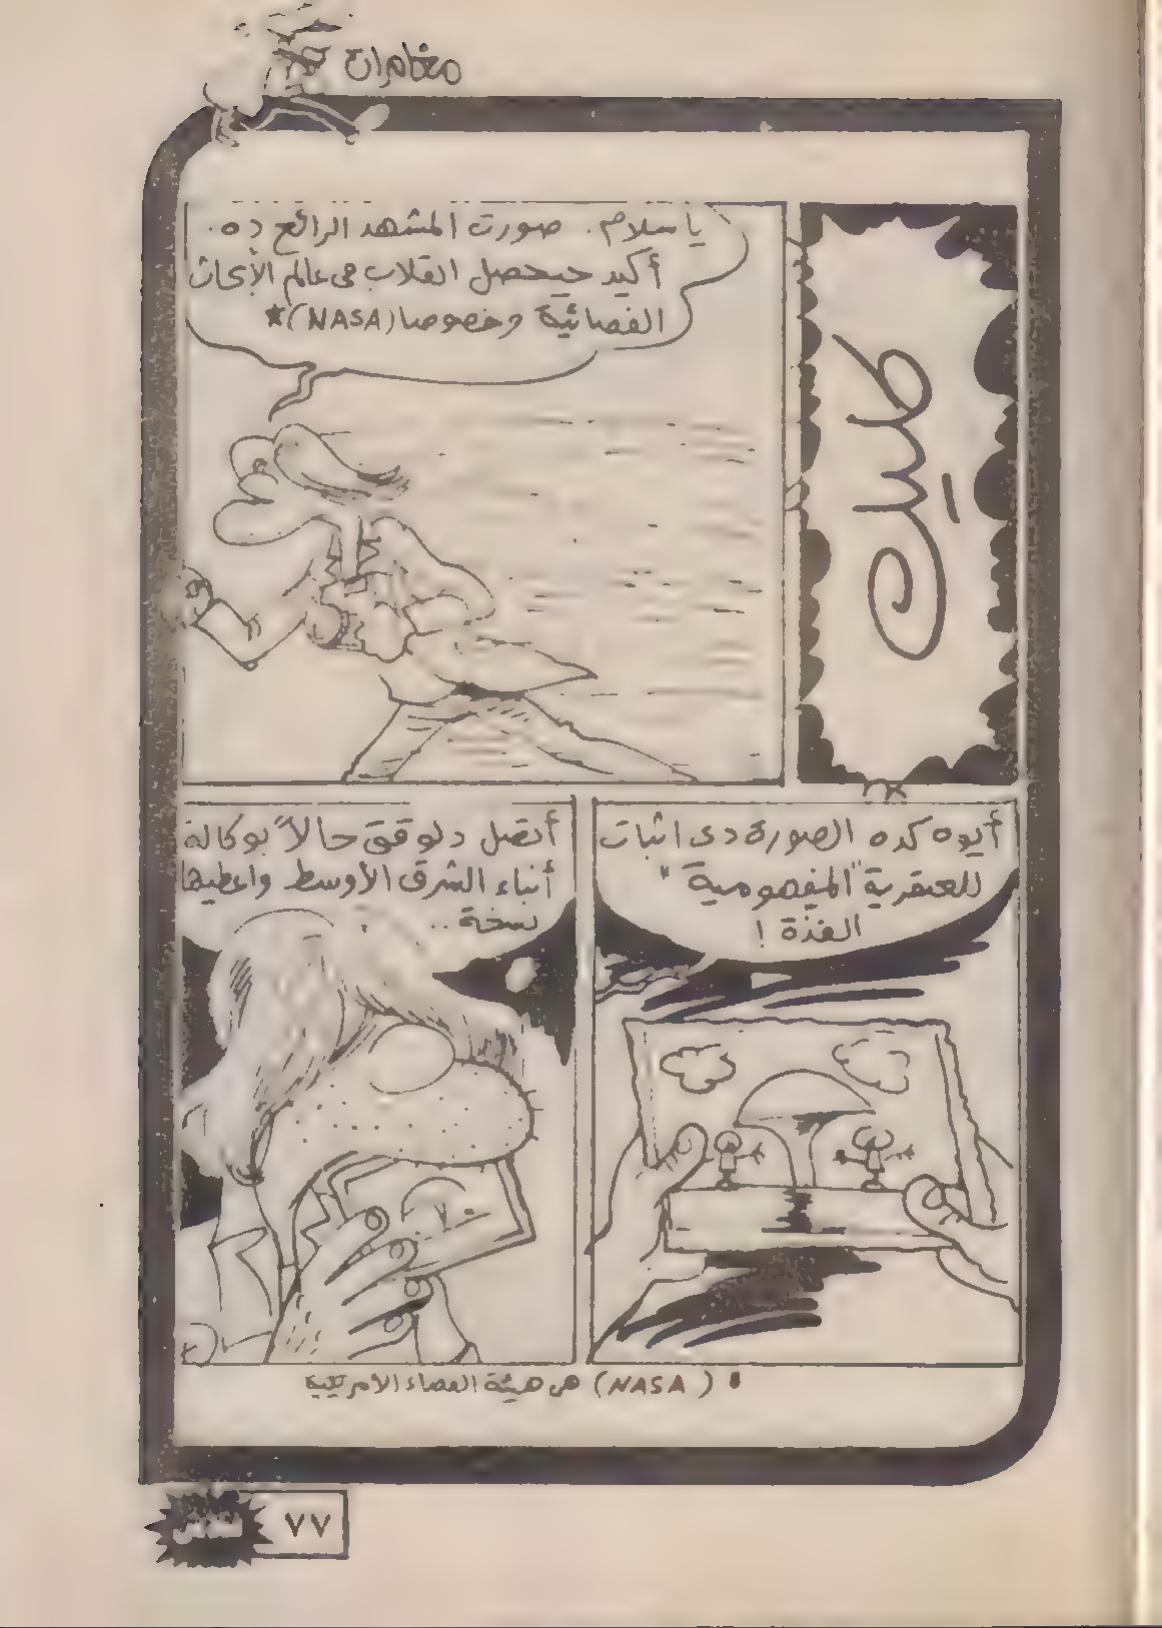 مغامرات
كليك
ياسلام. صورت المشهد الرائع ده.
أكيد حيحصل انقلاب فى عالم الأبحاث
الفضائية وخصوصا (NASA)★
أيوه كده الصورة دى اثبات
للعبقرية "المفهومية"
الفذة !
أتصل دلوقتى حالاً بوكالة
أنباء الشرق الأوسط واعطيها
نسخة ..
(NASA) هى هيئة الفضاء الأمريكية
٧٧